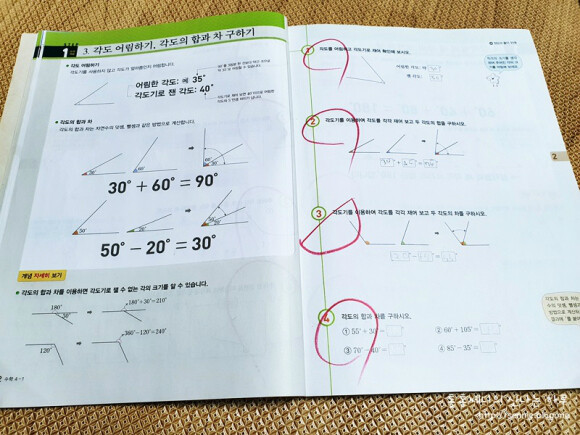 1
3. 각도 어림하기, 각도의 합과 차 구하기
각도 어림하기
각도기를 사용하지 않고 각도가 얼마쯤인지 어림합니다.
어림한 각도: 예 35°
각도기로 잰 각도: 40°
각도의 합과 차
각도의 합과 차는 자연수의 덧셈, 뺄셈과 같은 방법으로 계산합니다.
30° + 60° = 90°
50° − 20° = 30°
개념 자세히 보기
각도의 합과 차를 이용하면 각도기로 잴 수 없는 각의 크기를 알 수 있습니다.
180°
30°
180°+30°=210°
120°
360°−120°=240°
수학 4-1
1
각도를 어림하고 각도기로 재어 확인해 보시오.
어림한 각도: 약
잰 각도:
2
각도기를 이용하여 각도를 각각 재어 보고 두 각도의 합을 구하시오.
3
각도기를 이용하여 각도를 각각 재어 보고 두 각도의 차를 구하시오.
4
각도의 합과 차를 구하시오.
① 55° + 30° =
② 60° + 105° =
③ 70° − 40° =
④ 85° − 35° =
2